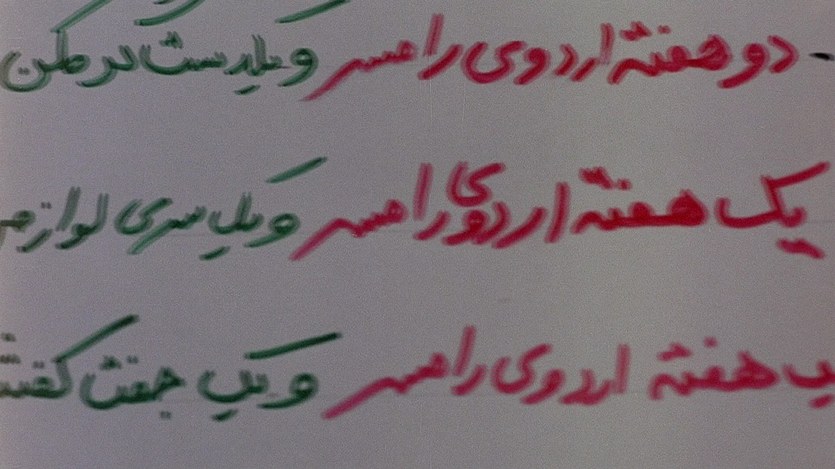 دو هفته اردوی رامسر و یکدست گرمکن
یک هفته اردوی رامسر و یک سری لوازم
هفته اردوی رامسر و یک جفت